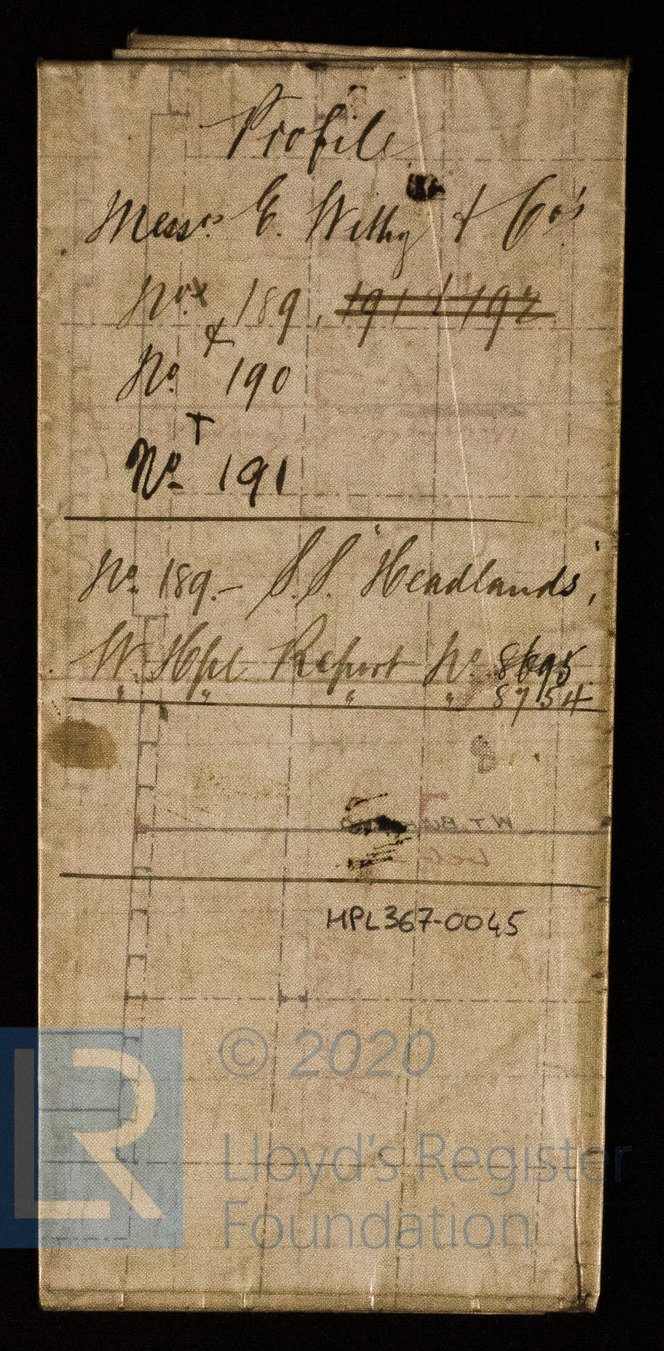 Profile
Messrs E. Withy & Co's
Nos 189, 191 & 192
&
No 190
No 191
No. 189.- S.S. "Headlands",
W. Hpl Report No. 8695
" " " " 8754
HPL367-0045
© 2020
LR
Lloyd's Register
Foundation